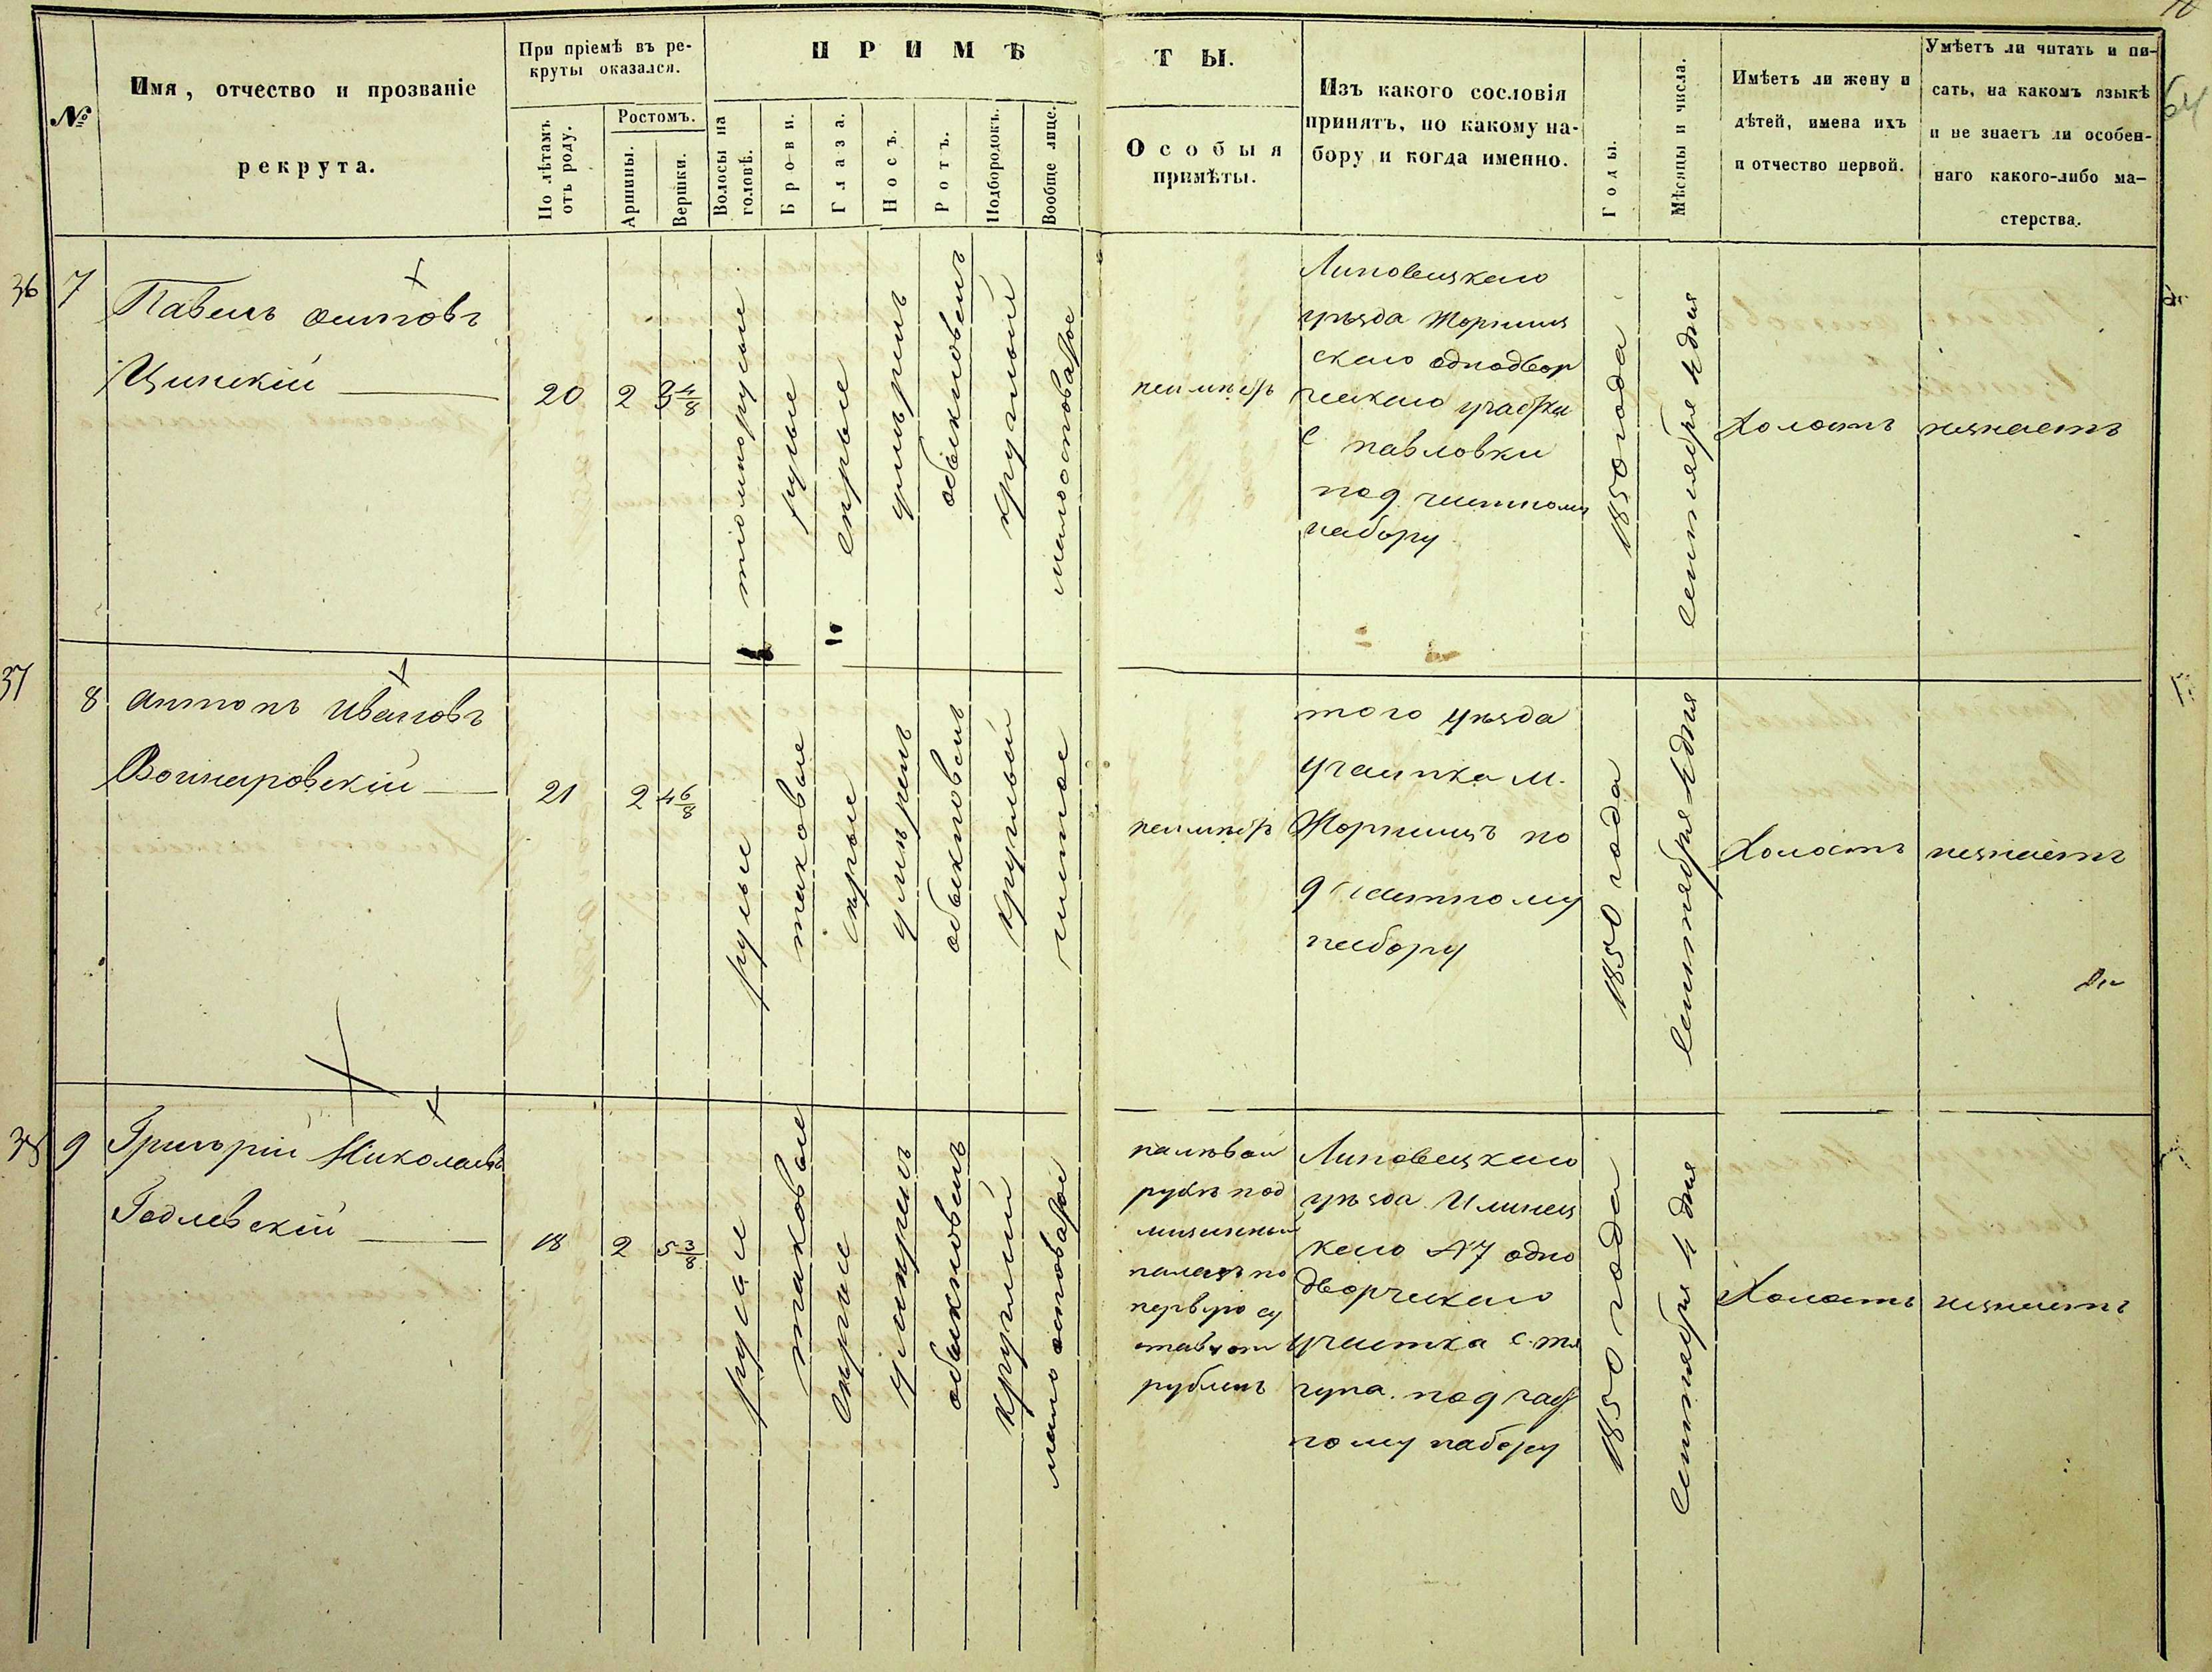 №
Имя, отчество и прозваніе
рекрута.
При пріемѣ въ ре-
круты оказался.
По лѣтамъ
отъ роду.
Ростомъ.
Аршины.
Вершки.
ПРИМѢ
Волосы на
головѣ.
Брови.
Глаза.
Носъ.
Ротъ.
Подбородокъ.
Вообще лице.
ТЫ.
Особыя
примѣты.
Изъ какого сословія
принятъ, по какому на-
бору и когда именно.
Годы.
Мѣсяцы и числа.
Имѣетъ ли жену и
дѣтей, имена ихъ
и отчество первой.
Умѣетъ ли читать и пи-
сать, на какомъ языкѣ
и не знаетъ ли особен-
наго какого-либо ма-
стерства.
64
36
7
Павелъ осиповъ
Цинскій
20
2
4/8
тіомнорусые
русые
серые
умѣрен
обыкновен
круглый
малоосповатое
неимѣеть
Липовецкаго
уѣзда Жорнищ
скаго однодвор
ческаго участка
с павловки
под частному
набору
1850 года
сентября 4 дня
Холостъ
незнаетъ
37
8
антонъ ивановъ
Войнаровскій
21
2
4 6/8
русые
таковые
серые
умѣрен
обыкновен
круглый
чистое
неимѣеть
того уѣзда
участка м.
Жорнищъ по
частному
набору
1850 года
сентября 4 дня
Холостъ
незнаетъ
38
9
Григорій Николаевъ
Годлевскій
18
2
5 3/8
русые
таковые
серые
умѣрен
обыкновен
круглый
мало осповатое
налѣвой
рукѣ под
мизинный
палецъ по
первую су
рублен
Липовецкаго
уѣзда Илинец
каго №7 одно
дворческаго
участка с. тя
гуна. под час
ному набору
1850 года
сентября 4 дня
Холостъ
незнаетъ